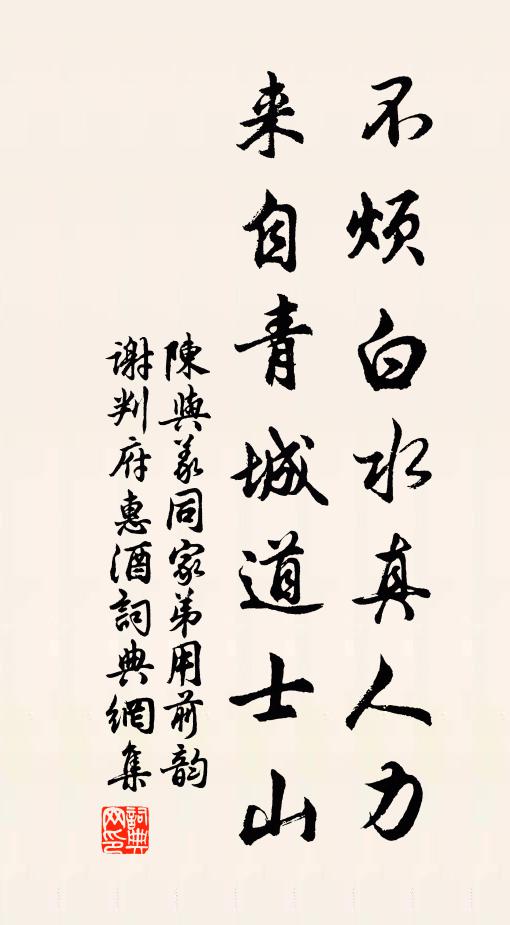 不烦白水真人力
来自青城道士山
陳與義同家弟用前韵
谢判府惠酒詞典網集
詞典网印